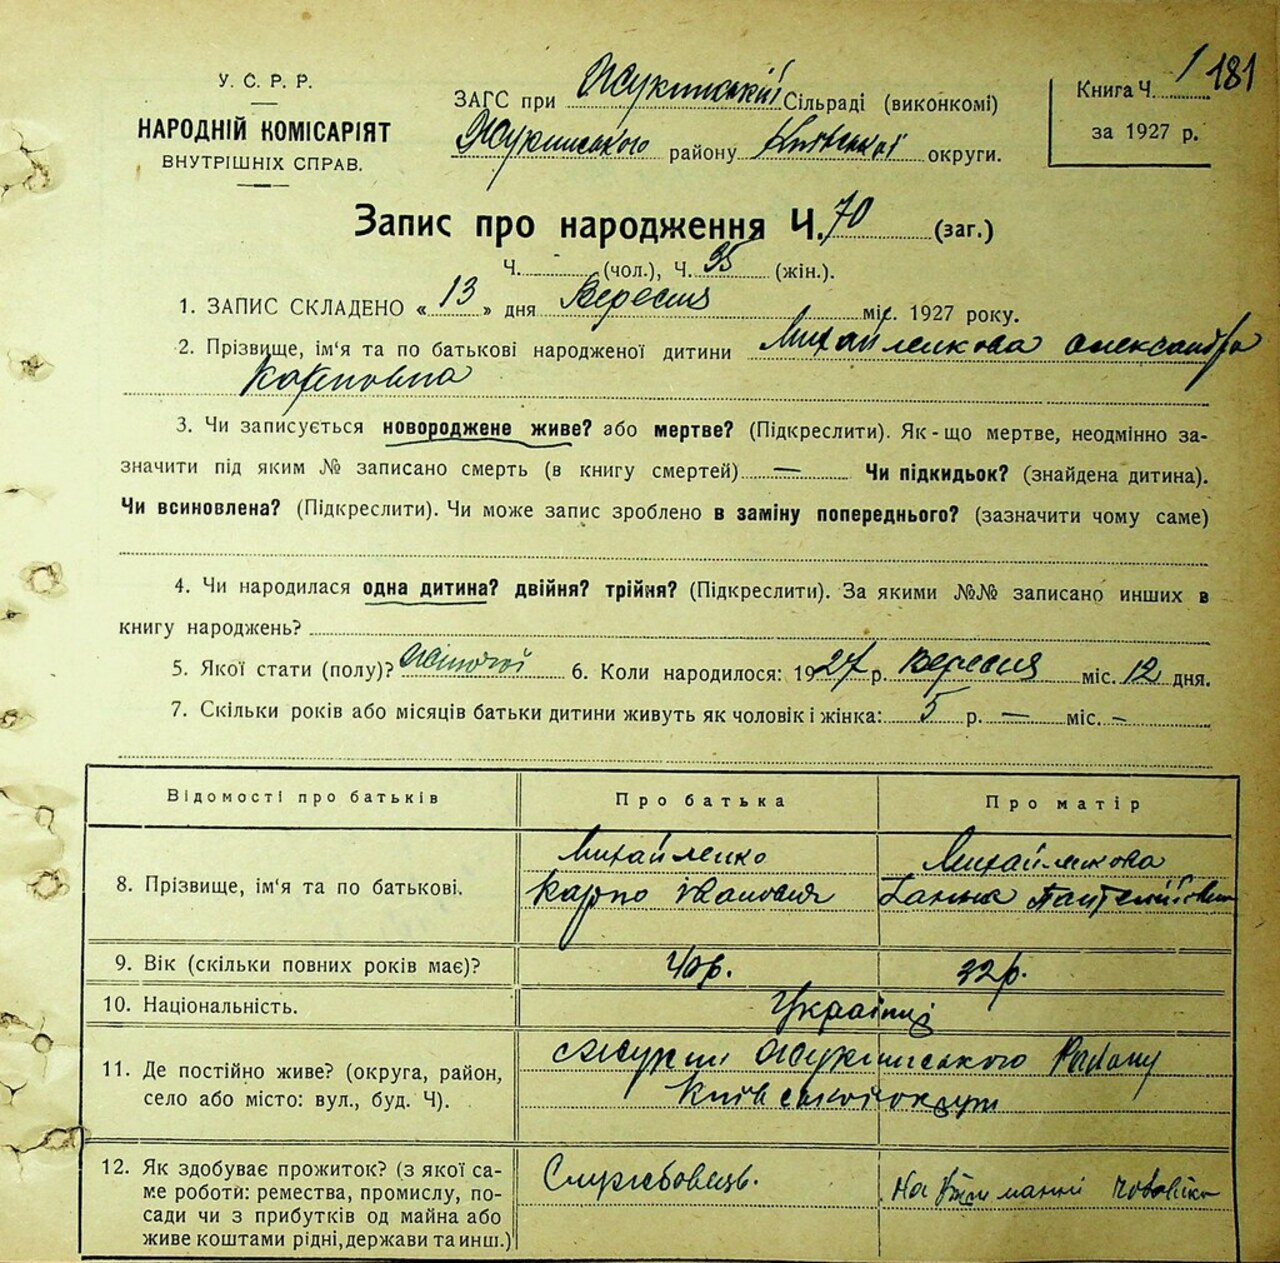 У. С. Р. Р.
НАРОДНІЙ КОМІСАРІЯТ
ВНУТРІШНІХ СПРАВ.
ЗАГС при Жукинській Сільраді (виконкомі)
Жукинського району Київської округи.
Книга Ч. 1 181
за 1927 р.
Запис про народження Ч. 70 (заг.)
Ч. (чол.), Ч. 35 (жін.).
1. ЗАПИС СКЛАДЕНО « 13 » дня Вересня міс. 1927 року.
2. Прізвище, ім'я та по батькові народженої дитини Михайленкова Олександра
Карповна
3. Чи записується новороджене живе? або мертве? (Підкреслити). Як-що мертве, неодмінно за-
значити під яким № записано смерть (в книгу смертей) — Чи підкидьок? (знайдена дитина).
Чи всиновлена? (Підкреслити). Чи може запис зроблено в заміну попереднього? (зазначити чому саме)
4. Чи народилася одна дитина? двійня? трійня? (Підкреслити). За якими №№ записано инших в
книгу народжень?
5. Якої стати (полу)? жіночої 6. Коли народилося: 1927 р. Вересня міс. 12 дня.
7. Скільки років або місяців батьки дитини живуть як чоловік і жінка: 5 р. — міс. —
Відомості про батьків Про батька Про матір
8. Прізвище, ім'я та по батькові. Михайленко Карпо Іванович Михайленкова Ганна
9. Вік (скільки повних років має)? 40 р. 32 р.
10. Національність. Українці
11. Де постійно живе? (округа, район, с Жукин Жукинського Району
село або місто: вул., буд. Ч). Київської округи
12. Як здобуває прожиток? (з якої са- Службовець. На чоловіка
ме роботи: ремества, промислу, по-
сади чи з прибутків од майна або
живе коштами рідні, держави та инш.)